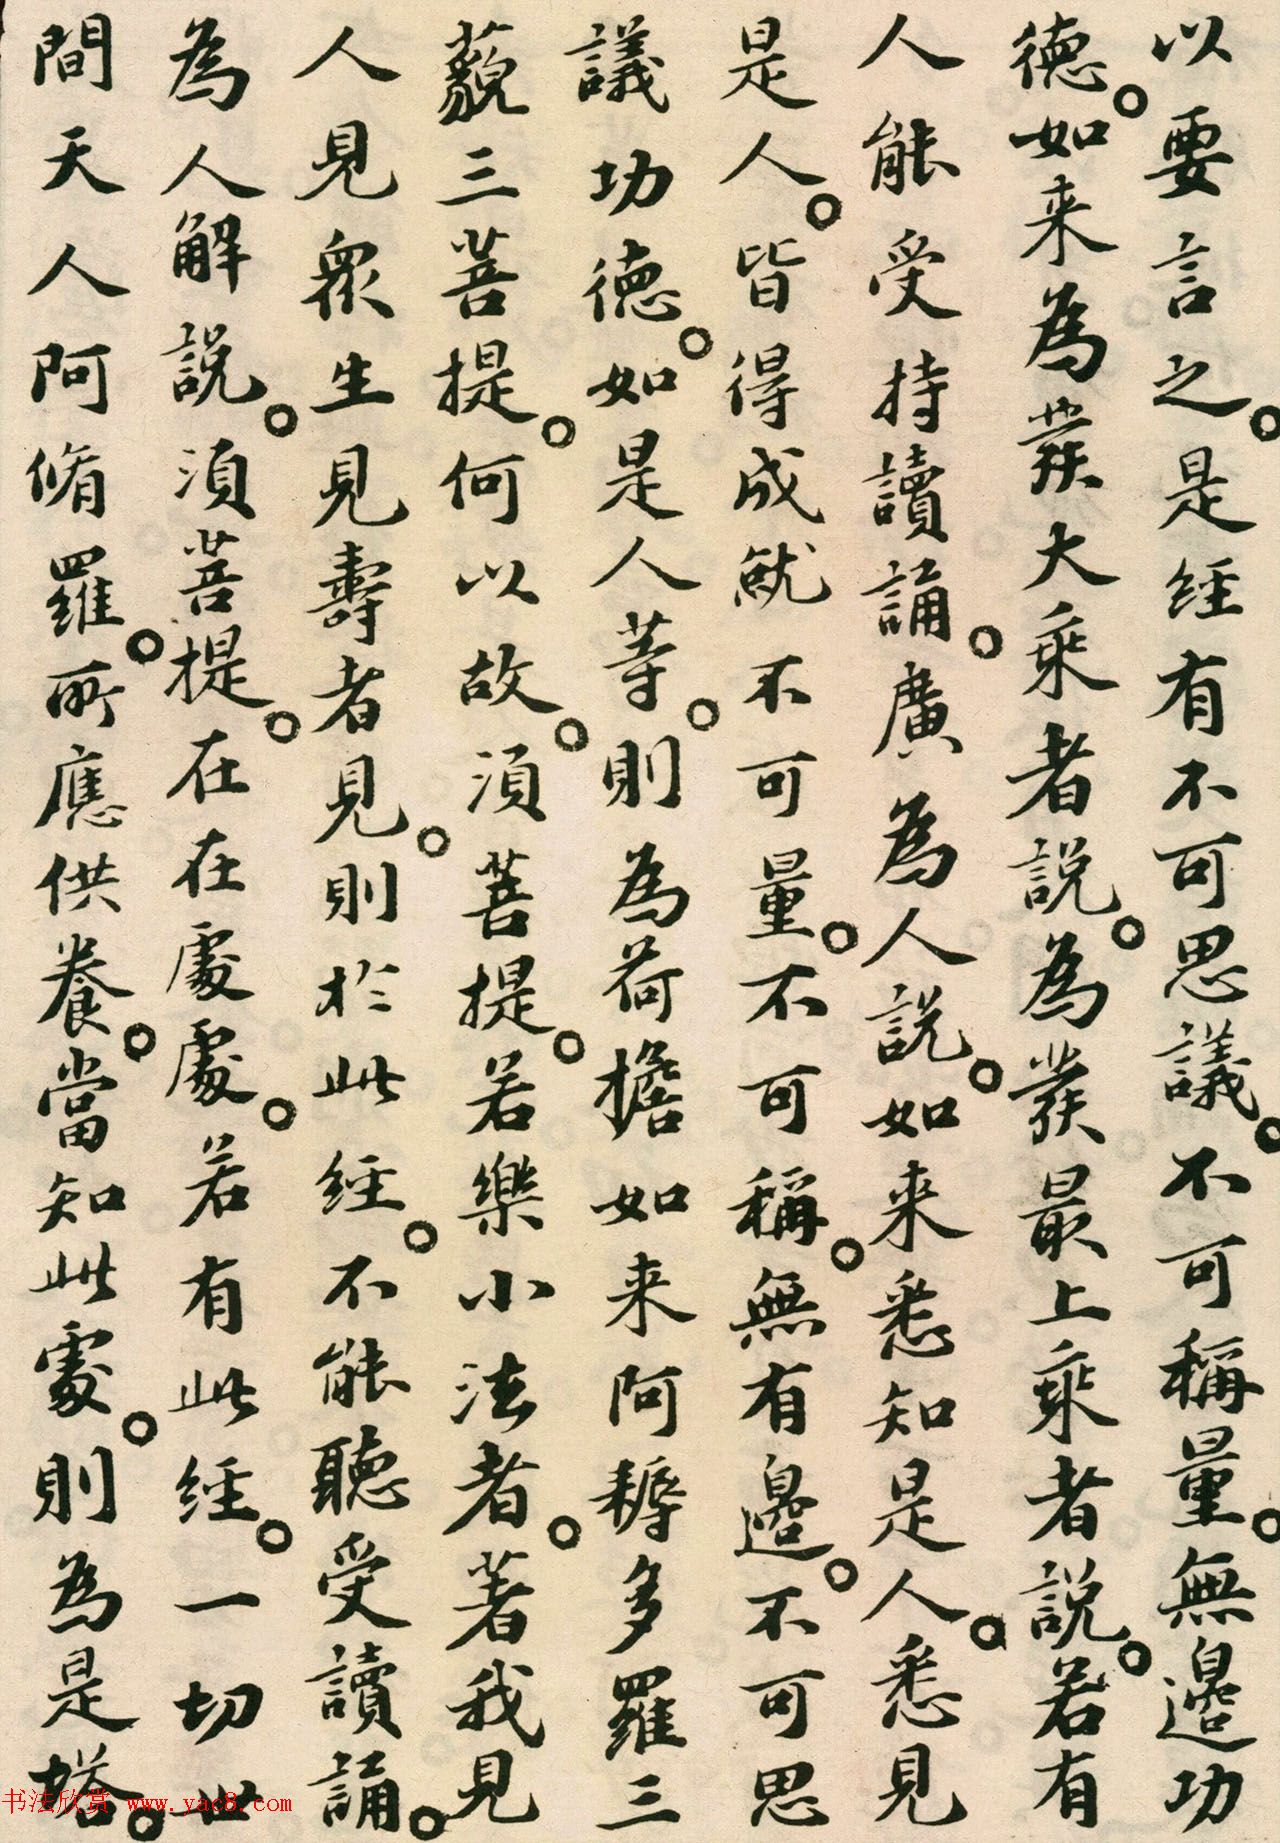 以要言之。是經有不可思議。不可稱量。無邊功
德。如来為發大乘者說。為發最上乘者說。若有
人能受持讀誦。廣為人說。如来悉知是人。悉見
是人。皆得成就不可量。不可稱。無有邊。不可思
議功德。如是人等。則為荷擔如来阿耨多羅三
藐三菩提。何以故。須菩提。若樂小法者。著我見
人見眾生見壽者見。則於此經。不能聽受讀誦。
為人解說。須菩提。在在處處。若有此經。一切世
間天人阿脩羅。所應供養。當知此處。則為是塔。
书法欣赏 www.yac8.com